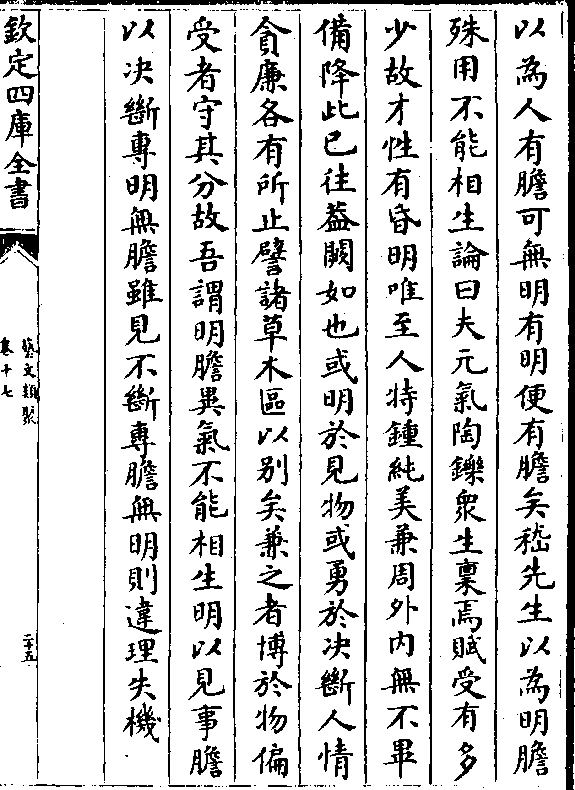 以為人有膽可無明有明便有膽矣嵇先生以為明膽
殊用不能相生論曰夫元氣陶鑠衆生稟焉賦受有多
少故才性有昏明唯至人特鍾純美兼周外内無不畢
備降此已往葢闕如也或明於見物或勇於决斷人情
貪廉各有所止譬諸草木區以别矣兼之者博於物偏
受者守其分故吾謂明膽異氣不能相生明以見事膽
以决斷專明無膽雖見不斷專膽無明則違理失機
欽定四庫全書
藝文類聚
卷十七
二十五